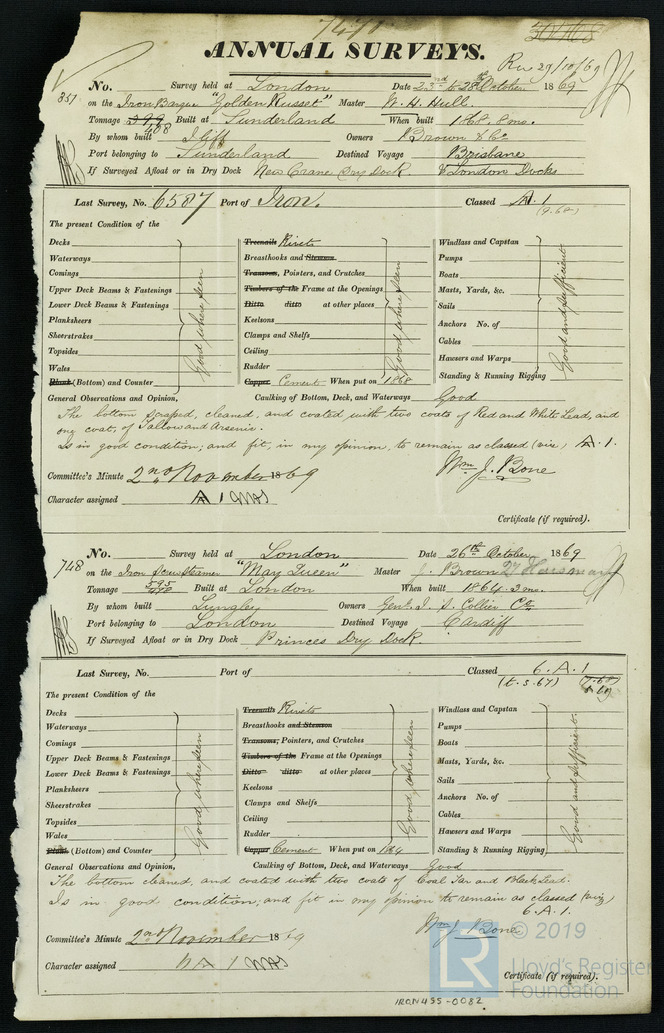 7471
ANNUAL SURVEYS.
Rec 29/10/69
351
No. Survey held at London Date 23rd to 28th October 1869
on the Iron Barque "Golden Russet" Master W. H. Hull.
Tonnage 399 408 Built at Sunderland When built 1868. 8mo.
By whom built Iliff Owners Brown & Co
Port belonging to Sunderland Destined Voyage Brisbane
If Surveyed Afloat or in Dry Dock New Crane Dry Dock. & London Docks
Last Survey, No. 6587 Port of Iron. Classed A. 1
(9.68)
The present Condition of the
Decks Treenails Rivets Windlass and Capstan
Waterways Breasthooks and Stemson Pumps
Comings Transoms, Pointers, and Crutches Boats
Upper Deck Beams & Fastenings Timbers of the Frame at the Openings Masts, Yards, &c.
Lower Deck Beams & Fastenings Ditto ditto at other places Sails
Planksheers Keelsons Anchors No. of
Sheerstrakes Clamps and Shelfs Cables
Topsides Ceiling Hawsers and Warps
Wales Rudder Standing & Running Rigging
(Bottom) and Counter Copper Cement When put on 1868
Good where seen Good where seen Good and sufficient
General Observations and Opinion, Caulking of Bottom, Deck, and Waterways Good
The bottom scraped, cleaned, and coated with two coats of Red and White Lead, and
one coat, of Tallow and Arsenic.
Is in good condition; and fit, in my opinion, to remain as classed (viz) A. 1.
Wm. J. Bone
Committee's Minute 2nd November 1869
Character assigned A 1
Certificate (if required).
748
No. Survey held at London Date 26th October 1869
on the Iron Screw Steamer "May Queen" Master J. Brown
Tonnage 595 Built at London When built 1864. 3mo.
By whom built Lungley Owners Genl. I. S. Collier Co
Port belonging to London Destined Voyage Cardiff
If Surveyed Afloat or in Dry Dock Princes Dry Dock.
Last Survey, No. Port of Classed 6. A. 1
(t.s. 67)
The present Condition of the
Decks Treenails Rivets Windlass and Capstan
Waterways Breasthooks and Stemson Pumps
Comings Transoms, Pointers, and Crutches Boats
Upper Deck Beams & Fastenings Timbers of the Frame at the Openings Masts, Yards, &c.
Lower Deck Beams & Fastenings Ditto ditto at other places Sails
Planksheers Keelsons Anchors No. of
Sheerstrakes Clamps and Shelfs Cables
Topsides Ceiling Hawsers and Warps
Wales Rudder Standing & Running Rigging
(Bottom) and Counter Copper Cement When put on 1864
Good where seen Good where seen Good and sufficient
General Observations and Opinion, Caulking of Bottom, Deck, and Waterways Good
The bottom cleaned, and coated with two coats of Coal Tar and Black Lead.
Is in good condition; and fit in my opinion to remain as classed (viz)
6. A. 1.
Wm J. Bone
Committee's Minute 2nd November 1869
Character assigned A 1
Certificate (if required).
IRON455-0082
LR © 2019
Lloyd's Register
Foundation